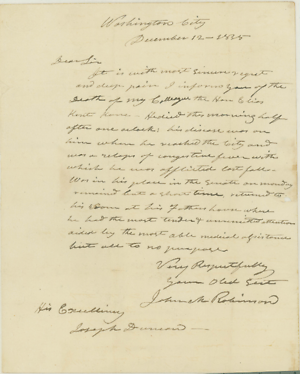 Washington City
December 12 - 1835
Dear Sir
It is with most sincere regret
and deep pain I inform you of the
Death of my Colleague the Hon Elias
Kent Kane - He died this morning half
after one oclock; his disease was on
him when he reached the City and
was a relapse of congestive fever with
which he was afflicted last fall -
Was in his place in the Senate on monday
remained but a short time, returned to
his room at his Fathers house where
he had the most tender &
aided by the most able medical assistance
but all to no purpose
Very Respectfully
Your Obt Svt
John M Robinson
His Excellency
Joseph Duncan